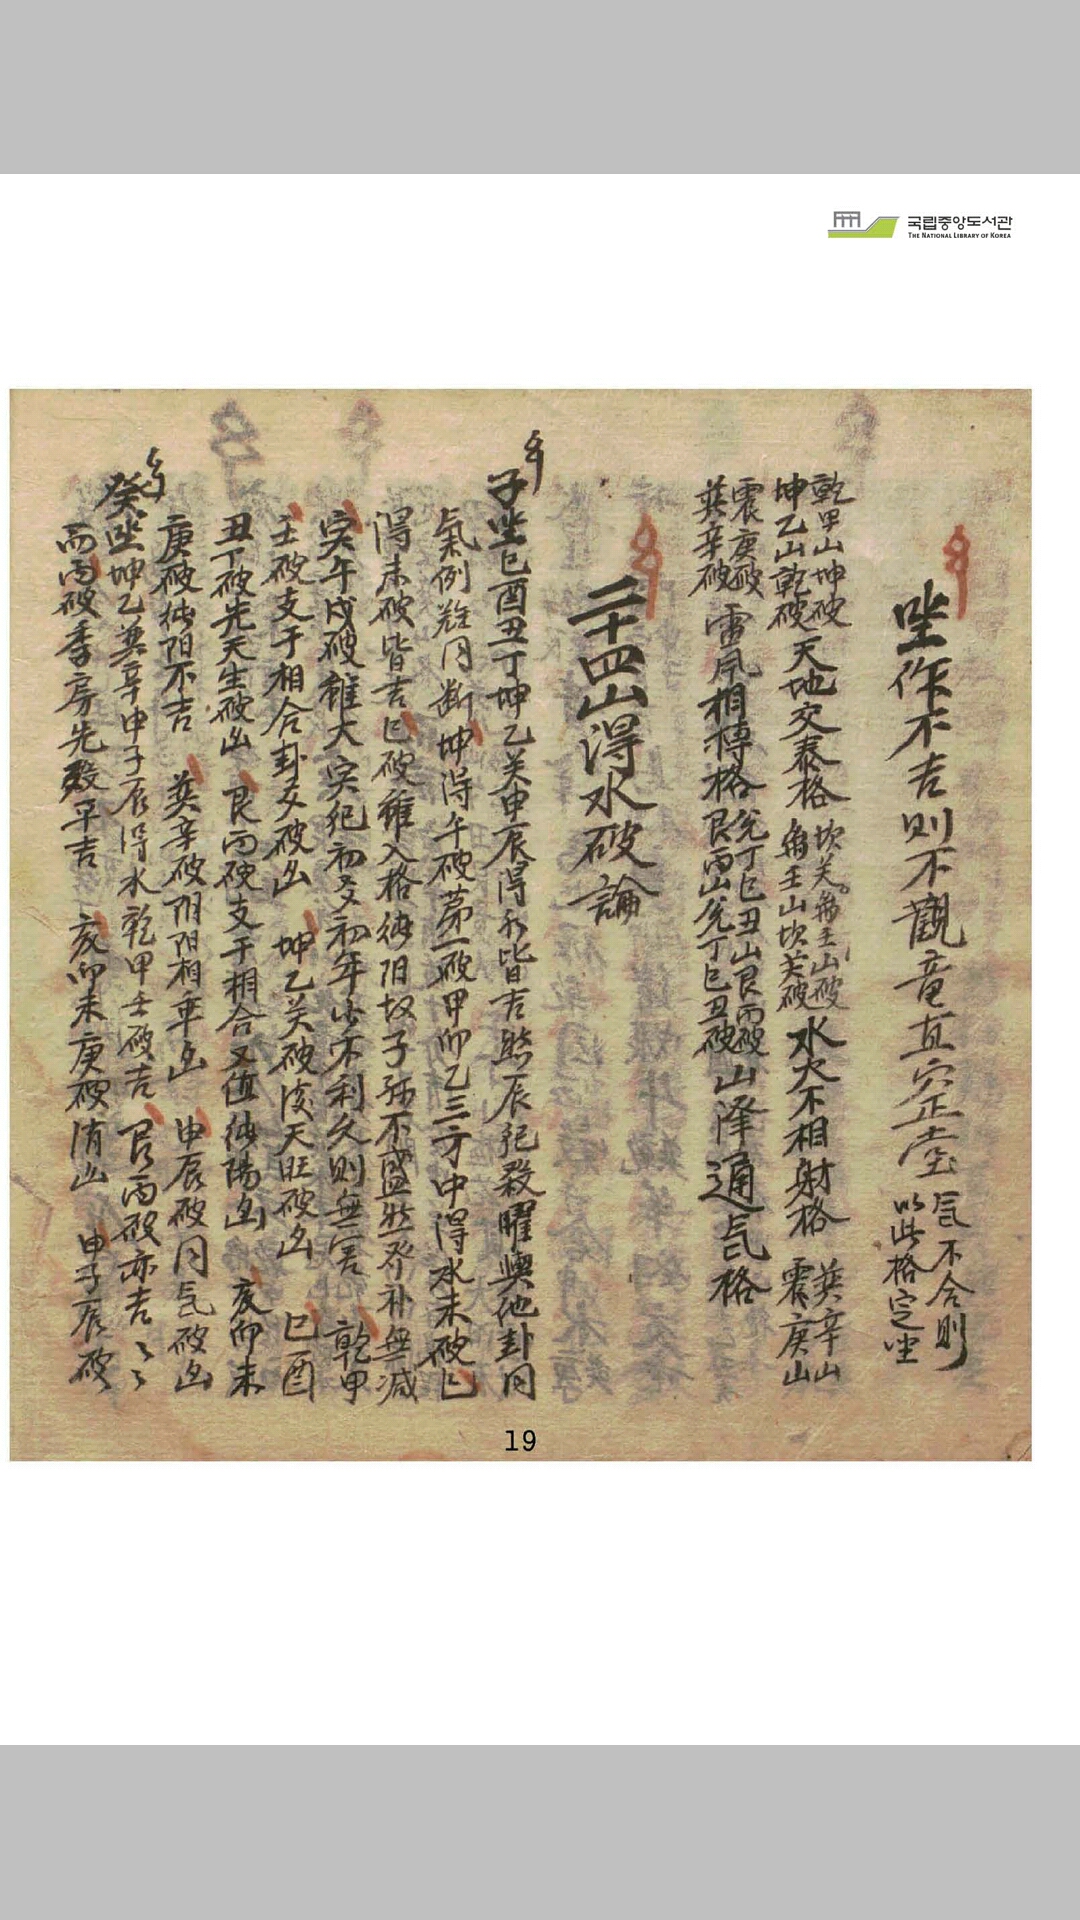 국립중앙도서관
THE NATIONAL LIBRARY OF KOREA
坐作不吉則不觀竜直穴正
气不合則
以此格定坐
乾甲山坤破
坤乙山乾破
天地交泰格
水火不相射格
巽辛山
震庚山
震庚破
巽辛破
雷風相搏格
兌丁巳丑山艮丙破
艮丙山兌丁巳丑破
山泽通气格
二十四山淂水破論
子坐巳酉丑丁坤乙癸申辰得水皆吉然辰犯殺曜與他卦同
氣例難同断坤得午破苐一破甲卯乙三方中得水未破巳
得未破皆吉巳破雖入格純阳故子孫不盛
补無减
寅午戌破雖大
犯初
初年
不利久則無害
乾甲
壬破支干相合卦
破凶
坤乙癸破後天旺破凶
巳酉
丑丁破先天生破凶
艮丙破支干相合又值純陽凶
亥卯未
庚破純阳不吉
巽辛破阴阳相乖凶
申辰破同气破凶
癸坐坤乙巽辛申子辰淂水乾甲壬破吉
艮丙破亦吉
而丙破季房先
平吉
亥卯未庚破
凶
申子辰破
19